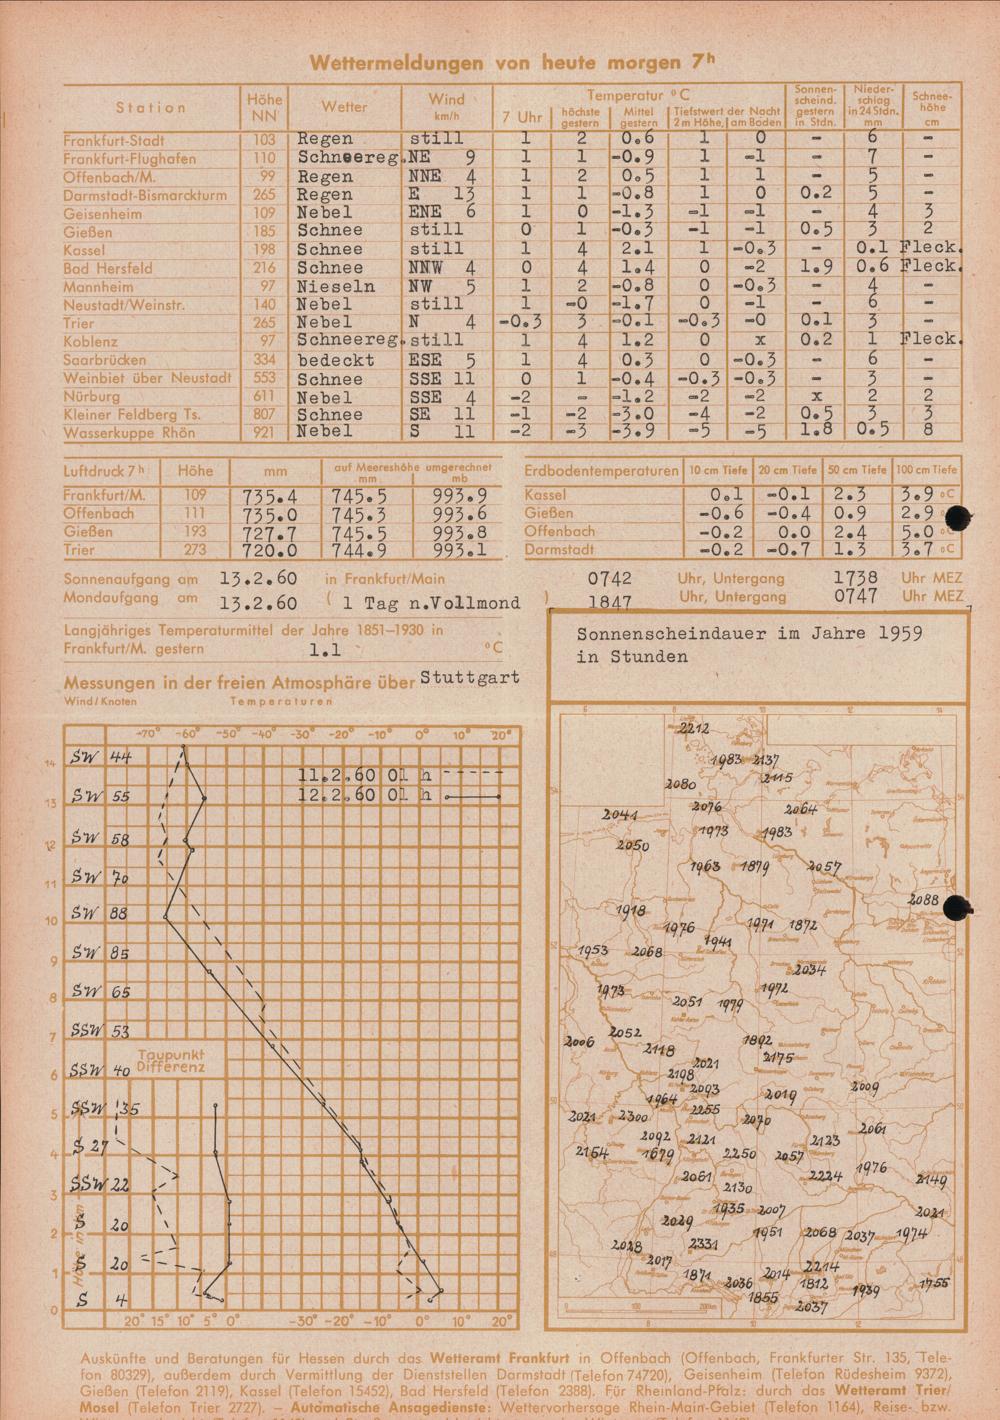 Wettermeldungen von heute morgen 7h
Station Höhe NN Wetter Wind km/h Temperatur °C Sonnenscheind. gestern in Stdn. Niederschlag in 24 Stdn. mm Schneehöhe cm
7 Uhr höchste gestern Mittel gestern Tiefstwert der Nacht 2 m Höhe, am Boden
Frankfurt-Stadt 103 Regen still 1 2 0.6 1 0 - 6 -
Frankfurt-Flughafen 110 Schneereg. NE 9 1 1 -0.9 1 -1 - 7 -
Offenbach/M. 99 Regen NNE 4 1 2 0.5 1 1 - 5 -
Darmstadt-Bismarckturm 265 Regen E 13 1 1 -0.8 1 0 0.2 5 -
Geisenheim 109 Nebel ENE 6 1 0 -1.3 -1 -1 - 4 3
Gießen 185 Schnee still 0 1 -0.3 -1 -1 0.5 3 2
Kassel 198 Schnee still 1 4 2.1 1 -0.3 - 0.1 Fleck.
Bad Hersfeld 216 Schnee NNW 4 0 4 1.4 0 -2 1.9 0.6 Fleck.
Mannheim 97 Nieseln NW 5 1 2 -0.8 0 -0.3 - 4 -
Neustadt/Weinstr. 140 Nebel still 1 -0 -1.7 0 -1 - 6 -
Trier 265 Nebel N 4 -0.3 3 -0.1 -0.3 -0 0.1 3 -
Koblenz 97 Schneereg. still 1 4 1.2 0 x 0.2 1 Fleck.
Saarbrücken 334 bedeckt ESE 5 1 4 0.3 0 -0.3 - 6 -
Weinbiet über Neustadt 553 Schnee SSE 11 0 1 -0.4 -0.3 -0.3 - 3 -
Nürburg 611 Nebel SSE 4 -2 - -1.2 -2 -2 x 2 2
Kleiner Feldberg Ts. 807 Schnee SE 11 -1 -2 -3.0 -4 -2 0.5 3 3
Wasserkuppe Rhön 921 Nebel S 11 -2 -3 -3.9 -5 -5 1.8 0.5 8
Luftdruck 7h Höhe mm auf Meereshöhe umgerechnet mm mb
Frankfurt/M. 109 735.4 745.5 993.9
Offenbach 111 735.0 745.3 993.6
Gießen 193 727.7 745.5 993.8
Trier 273 720.0 744.9 993.1
Erdbodentemperaturen 10 cm Tiefe 20 cm Tiefe 50 cm Tiefe 100 cm Tiefe
Kassel 0.1 -0.1 2.3 3.9 °C
Gießen -0.6 -0.4 0.9 2.9
Offenbach -0.2 0.0 2.4 5.0 °C
Darmstadt -0.2 -0.7 1.3 3.7 °C
Sonnenaufgang am 13.2.60 in Frankfurt/Main 0742 Uhr, Untergang 1738 Uhr MEZ
Mondaufgang am 13.2.60 ( 1 Tag n.Vollmond ) 1847 Uhr, Untergang 0747 Uhr MEZ
Langjähriges Temperaturmittel der Jahre 1851–1930 in
Frankfurt/M. gestern 1.1 °C
Messungen in der freien Atmosphäre über Stuttgart
Wind/Knoten Temperaturen
-70° -60° -50° -40° -30° -20° -10° 0° 10° 20°
11.2.60 01 h
12.2.60 01 h
14 SW 44
13 SW 55
12 SW 58
11 SW 70
10 SW 88
9 SW 85
8 SW 65
7 SSW 53
6 SSW 40
Taupunkt
Differenz
5 SSW 35
4 S 27
3 SSW 22
2 S 20
1 S 20
0 S 4
Höhe in km
20° 15° 10° 5° 0° -30° -20° -10° 0° 10° 20°
Sonnenscheindauer im Jahre 1959
in Stunden
6 8 10 12 14
2212
1983 2137
2080 2115
2041 2076 2064
1973 1983
2050
1963 1879 2057
2088
1918
1976 1971 1872
1941
1953 2068
2034
1973 1972
2051 1979
2052
2006 1892
2118 2175
2021
2198
2093 2019 2009
1964
2255
2021 2300 2070
2061
2092 2121 2123
2154 1679 2250 2057
1976
2061 2224 2149
2130
1935 2007 2021
2029
1951 2068 2037 1974
2028 2331
2017 2214
1871 2014
2036 1812 1939 1755
1855
2037
0 100 200km
8 10 12
Auskünfte und Beratungen für Hessen durch das Wetteramt Frankfurt in Offenbach (Offenbach, Frankfurter Str. 135, Tele-
fon 80329), außerdem durch Vermittlung der Dienststellen Darmstadt (Telefon 74720), Geisenheim (Telefon Rüdesheim 9372),
Gießen (Telefon 2119), Kassel (Telefon 15452), Bad Hersfeld (Telefon 2388). Für Rheinland-Pfalz: durch das Wetteramt Trier/
Mosel (Telefon Trier 2727). – Automatische Ansagedienste: Wettervorhersage Rhein-Main-Gebiet (Telefon 1164), Reise- bzw.